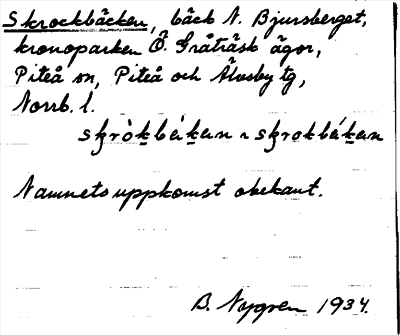 Skrockbäcken, bäck N. Bjursberget,
kronoparken Ö. Gråträsk ägor,
Piteå sn, Piteå och Älvsby tg,
Norrb. l.
skròkbékan ~ skrokbékan
Namnets uppkomst obekant.
B. Nygren 1934.